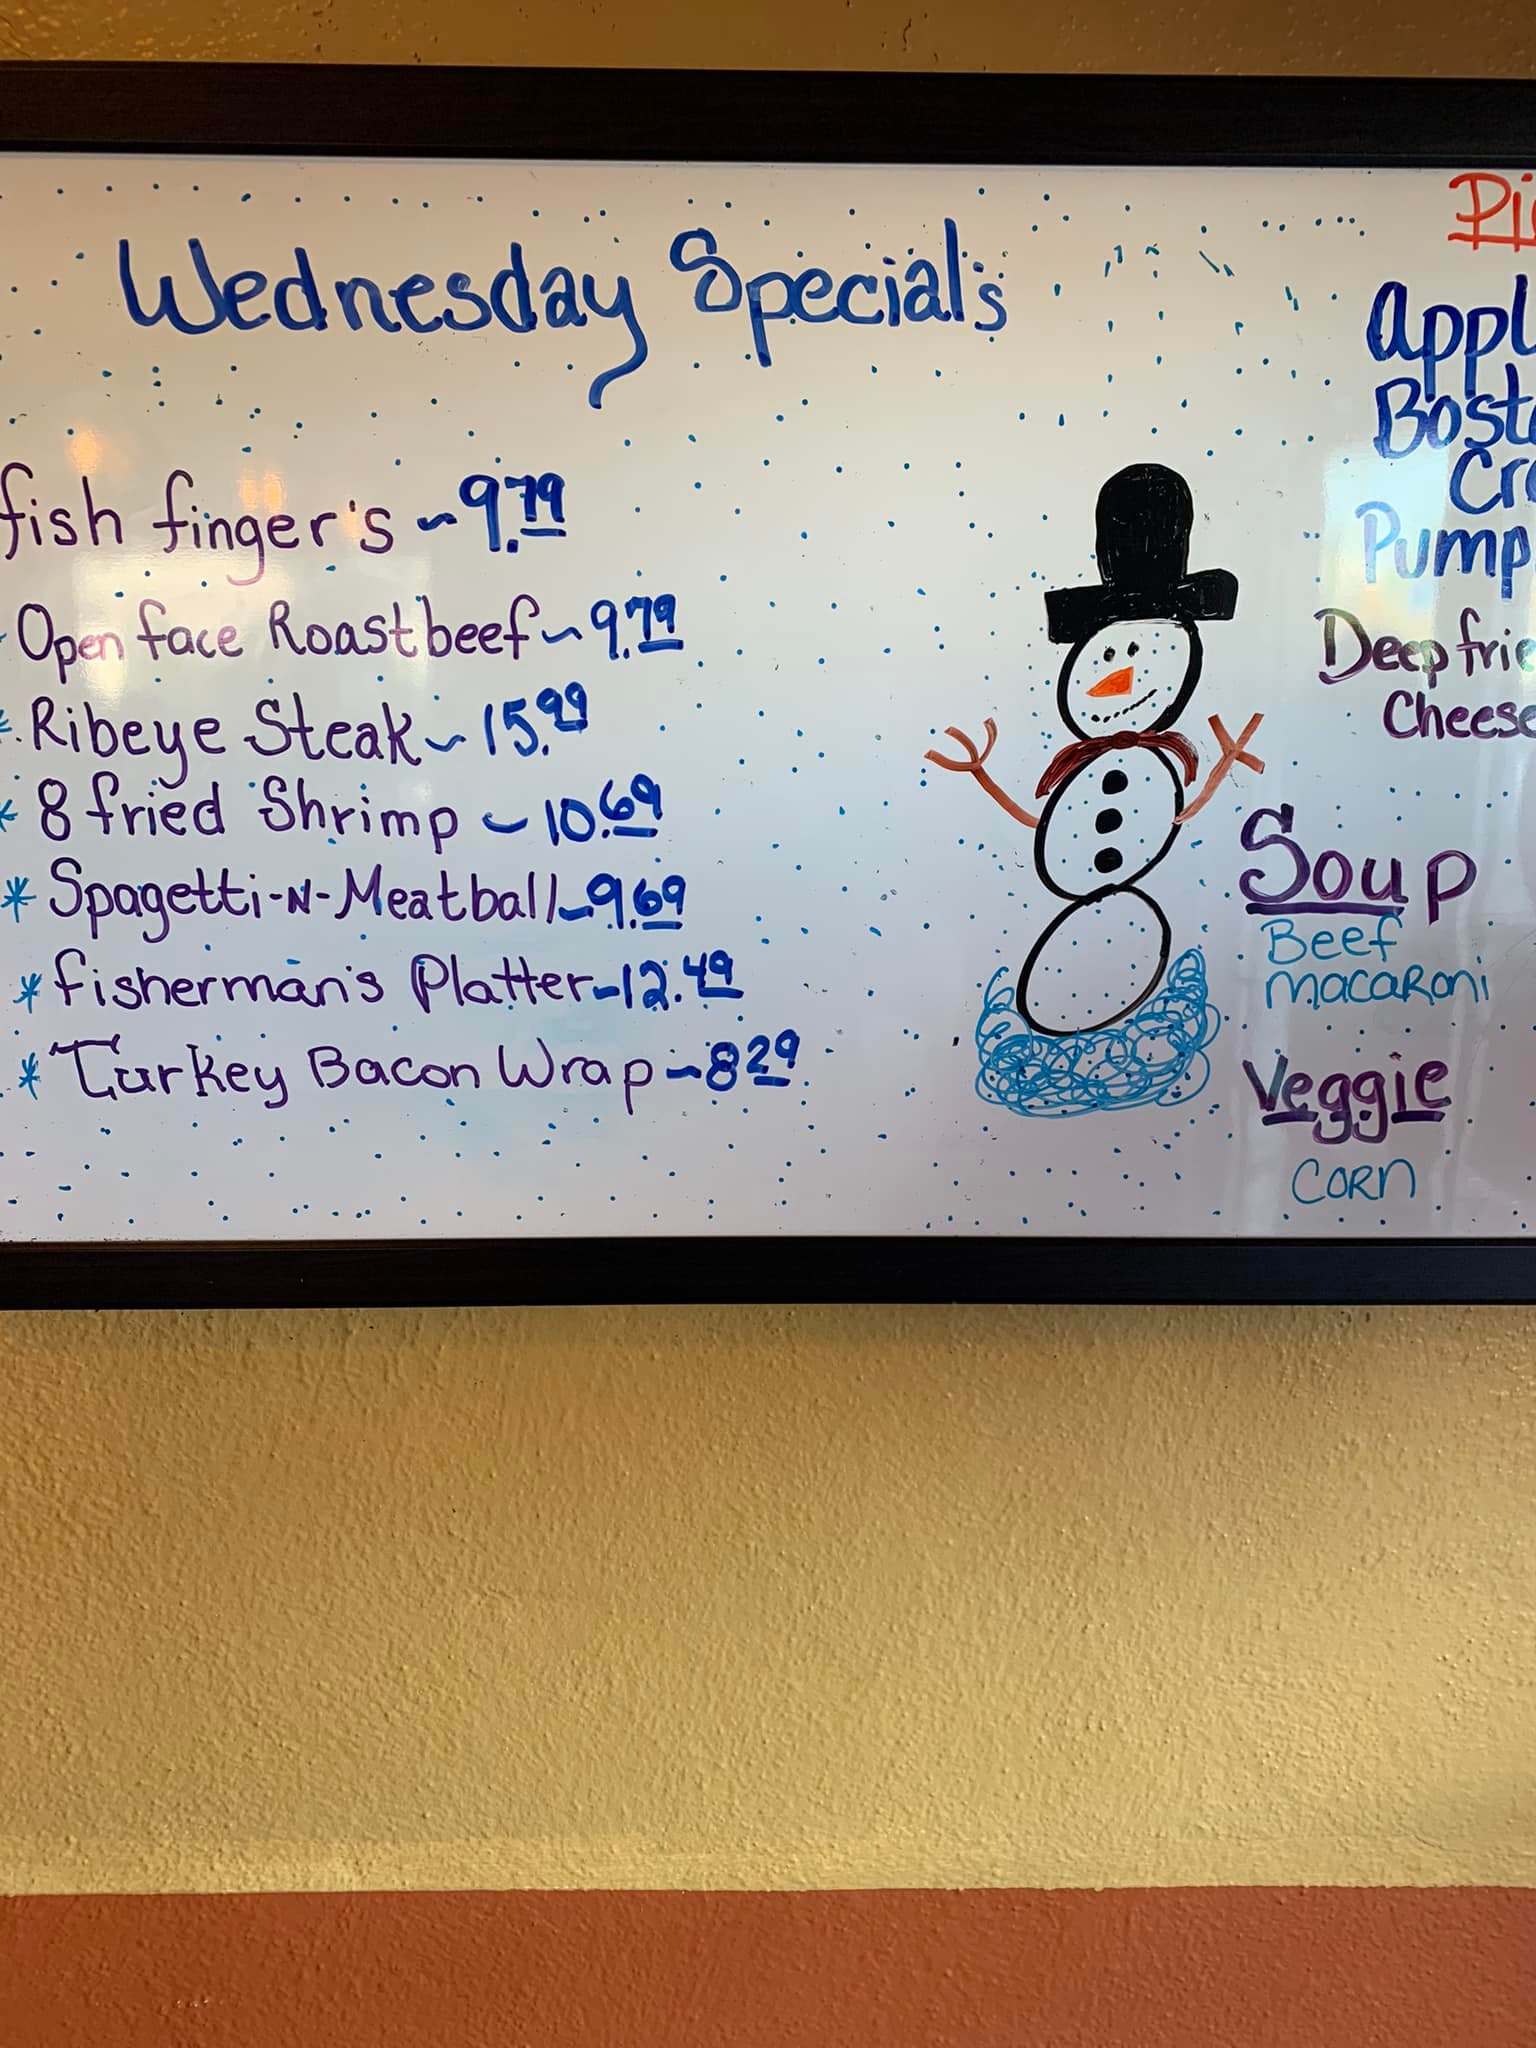 Wednesday Specials
fish finger's ~ 9.79
Open face Roastbeef ~ 9.79
* Ribeye Steak ~ 15.99
* 8 fried Shrimp ~ 10.69
* Spagetti-N-Meatball - 9.69
* fisherman's Platter - 12.49
* Turkey Bacon Wrap ~ 8 29
Deep
Cheese
Soup
Beef
macaRoni
Veggie
CORN